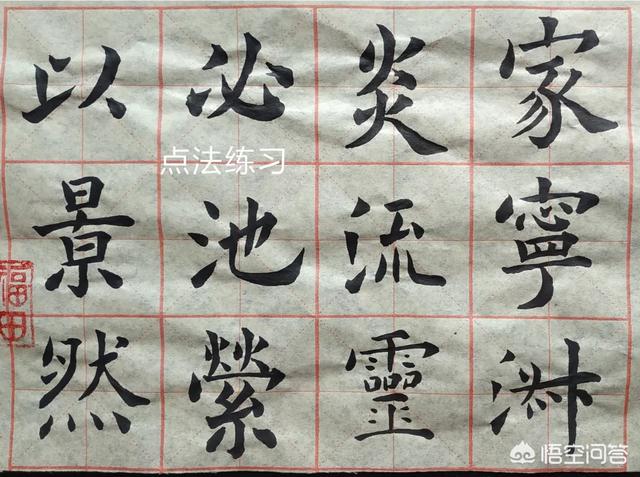 家寧
炎流靈
必池縈
以景然
点法练习
福田
悟空问答